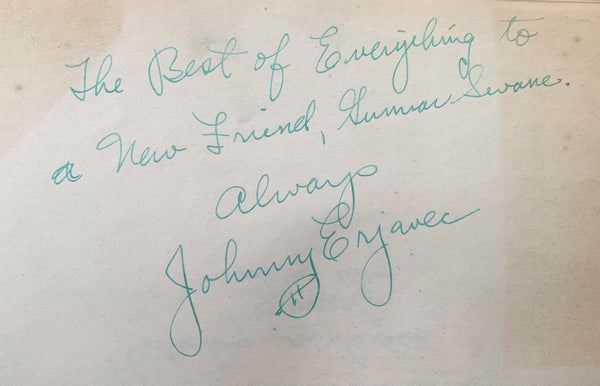 The Best of Everything to
a New Friend, Gunnar Swane.
Always
Johnny Erjavec
"